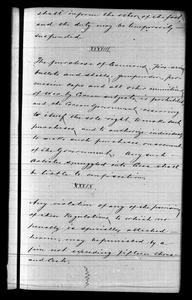 shall inform the other of the fact
and the duty may be temporarily
suspended.
XXXVIII
The purchase of Cannons, Fire-arms
bullets and shells, gunpowder, per-
cussion caps and all other munitions
of War by Corean subjects is prohibited
and the Corean Government reserving
to itself the sole right to make such
purchases and to authorize individuals
to make such purchases on account
of the Government. Any such
Articles smuggled into Corea shall
be liable to confiscation.
XXXIX
Any violation of any of the provisions
of these Regulations, to which no
penalty is specially attached
herein, may be punished by a
fine not exceeding fifteen thous-
and Cash.